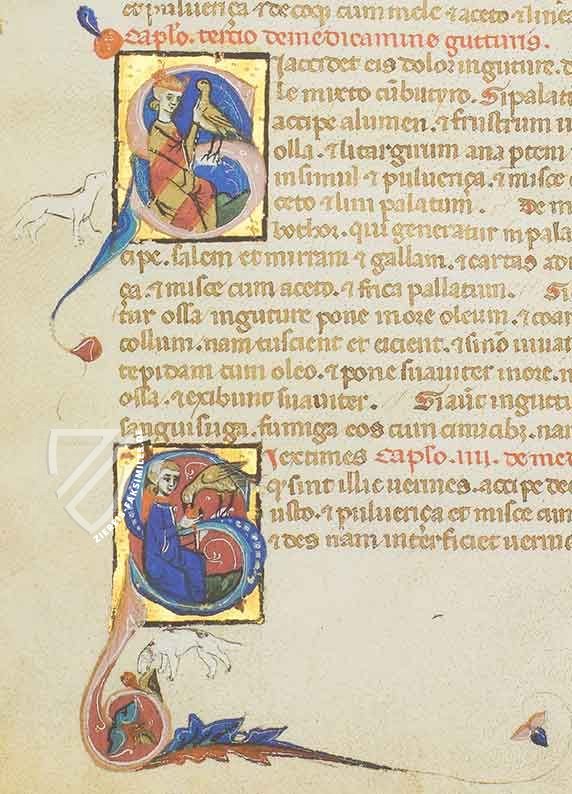 et puluerica ⁊ de coq cum mele ⁊ aceto ⁊ line
Caplo. tertio de medicamine gutturis.
Si accidet eis dolor in guture. d
le mixto cū butyro. Si palat
accipe alumen. ⁊ frustrum u
olla. ⁊ litargirum ana ptem
insimul ⁊ puluerica. ⁊ misce
ceto ⁊ lini palatum. De m
bothor. qui generatur in pala
cipe. salem et mirram ⁊ gallam. ⁊ cartas
ca. ⁊ misce cum aceto. ⁊ frica pallatum. Si
tur ossa in guture pone in ore oleum. ⁊ coar
collum. nam tuscient et eicient. ⁊ si nō
tepidam cum oleo. ⁊ pone suauiter in ore.
ossa. ⁊ exibunt suauiter. Si aūt in gutu
sanguisuga. fumiga eos cum cimicibz. nam
Si extimes Caplo. IIII. de me
q sint illic uermes. accipe de
iusto. ⁊ puluerica et misce cum
⁊ des nam interficiet uerme
ZIEREIS FAKSIMILES